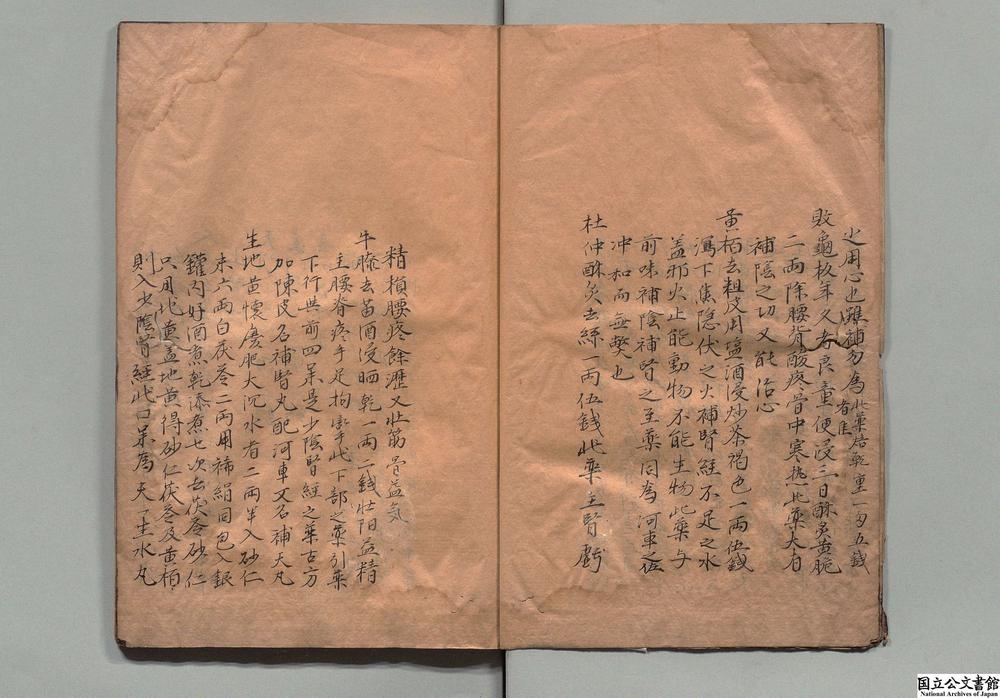 之用心也雖補勿爲此藥焙乾重一両五錢
者佳
敗龜板年久者良童便浸三日酥炙黄脆
二両除腰背酸疼骨中寒熱此藥大有
補陰之功又能治心
黄栢去粗皮用塩酒浸炒茶褐色一両伍錢
瀉下焦隐伏之火補腎經不足之水
盖邪火止能動物不能生物此藥与
前味補陰補腎之至藥同為河車之佐
冲和而無弊也
杜仲酥炙去絲一両伍錢此藥主腎虧
精損腰疼餘瀝又壮筋骨益氣
牛膝去苗酒浸晒乾一両二錢壮阳益精
主腰脊疼手足拘攣此下部之藥引藥
下行與前四味是少陰腎經之藥古方
加陳皮名補腎丸配河車又名補天丸
生地黄懷慶肥大沉水者二両半入砂仁
末六両白茯苓二両用稀絹同包入銀
鑵内好酒煮乾添煮七次去茯苓砂仁
只用地黄盖地黄得砂仁茯苓及黄栢
則入少陰腎經此四味為天一生水丸
国立公文書館
National Archives of Japan